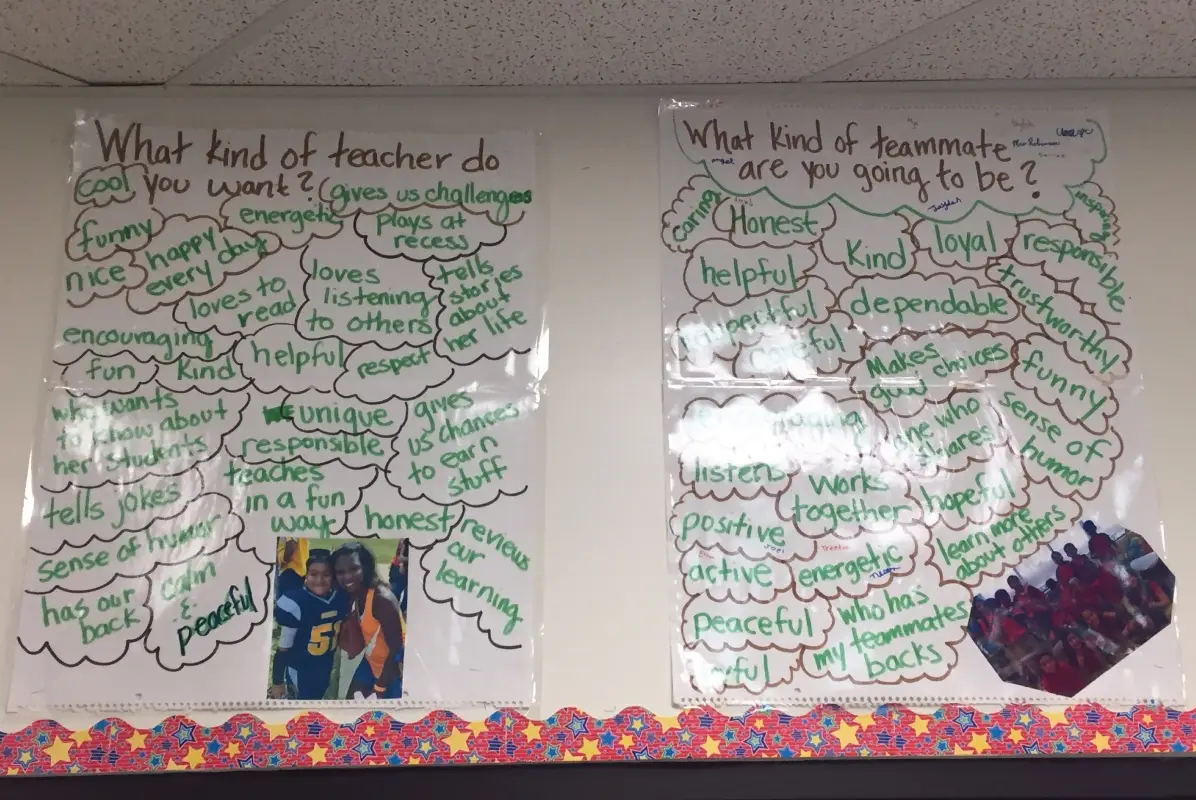 What kind of teacher do
you want?
cool
gives us challenges
funny
energetic
plays at
recess
nice
happy
every day
loves to
read
loves
listening
to others
tells
stories
about
her life
encouraging
fun
kind
helpful
respect
who wants
to know about
her students
unique
responsible
gives
us chances
to earn
stuff
tells jokes
teaches
in a fun
way
honest
reviews
our
learning
sense of humor
has our
back
calm
&
peaceful
51
What kind of teammate
are you going to be?
Jayden
caring
Honest
Kind
loyal
responsible
inspiring
helpful
dependable
trustworthy
careful
Makes
good choices
funny
one who
shares
sense of
humor
listens
works
together
hopeful
positive
Joei
learn more
about others
active
Trenton
energetic
peaceful
who has
my teammates
backs